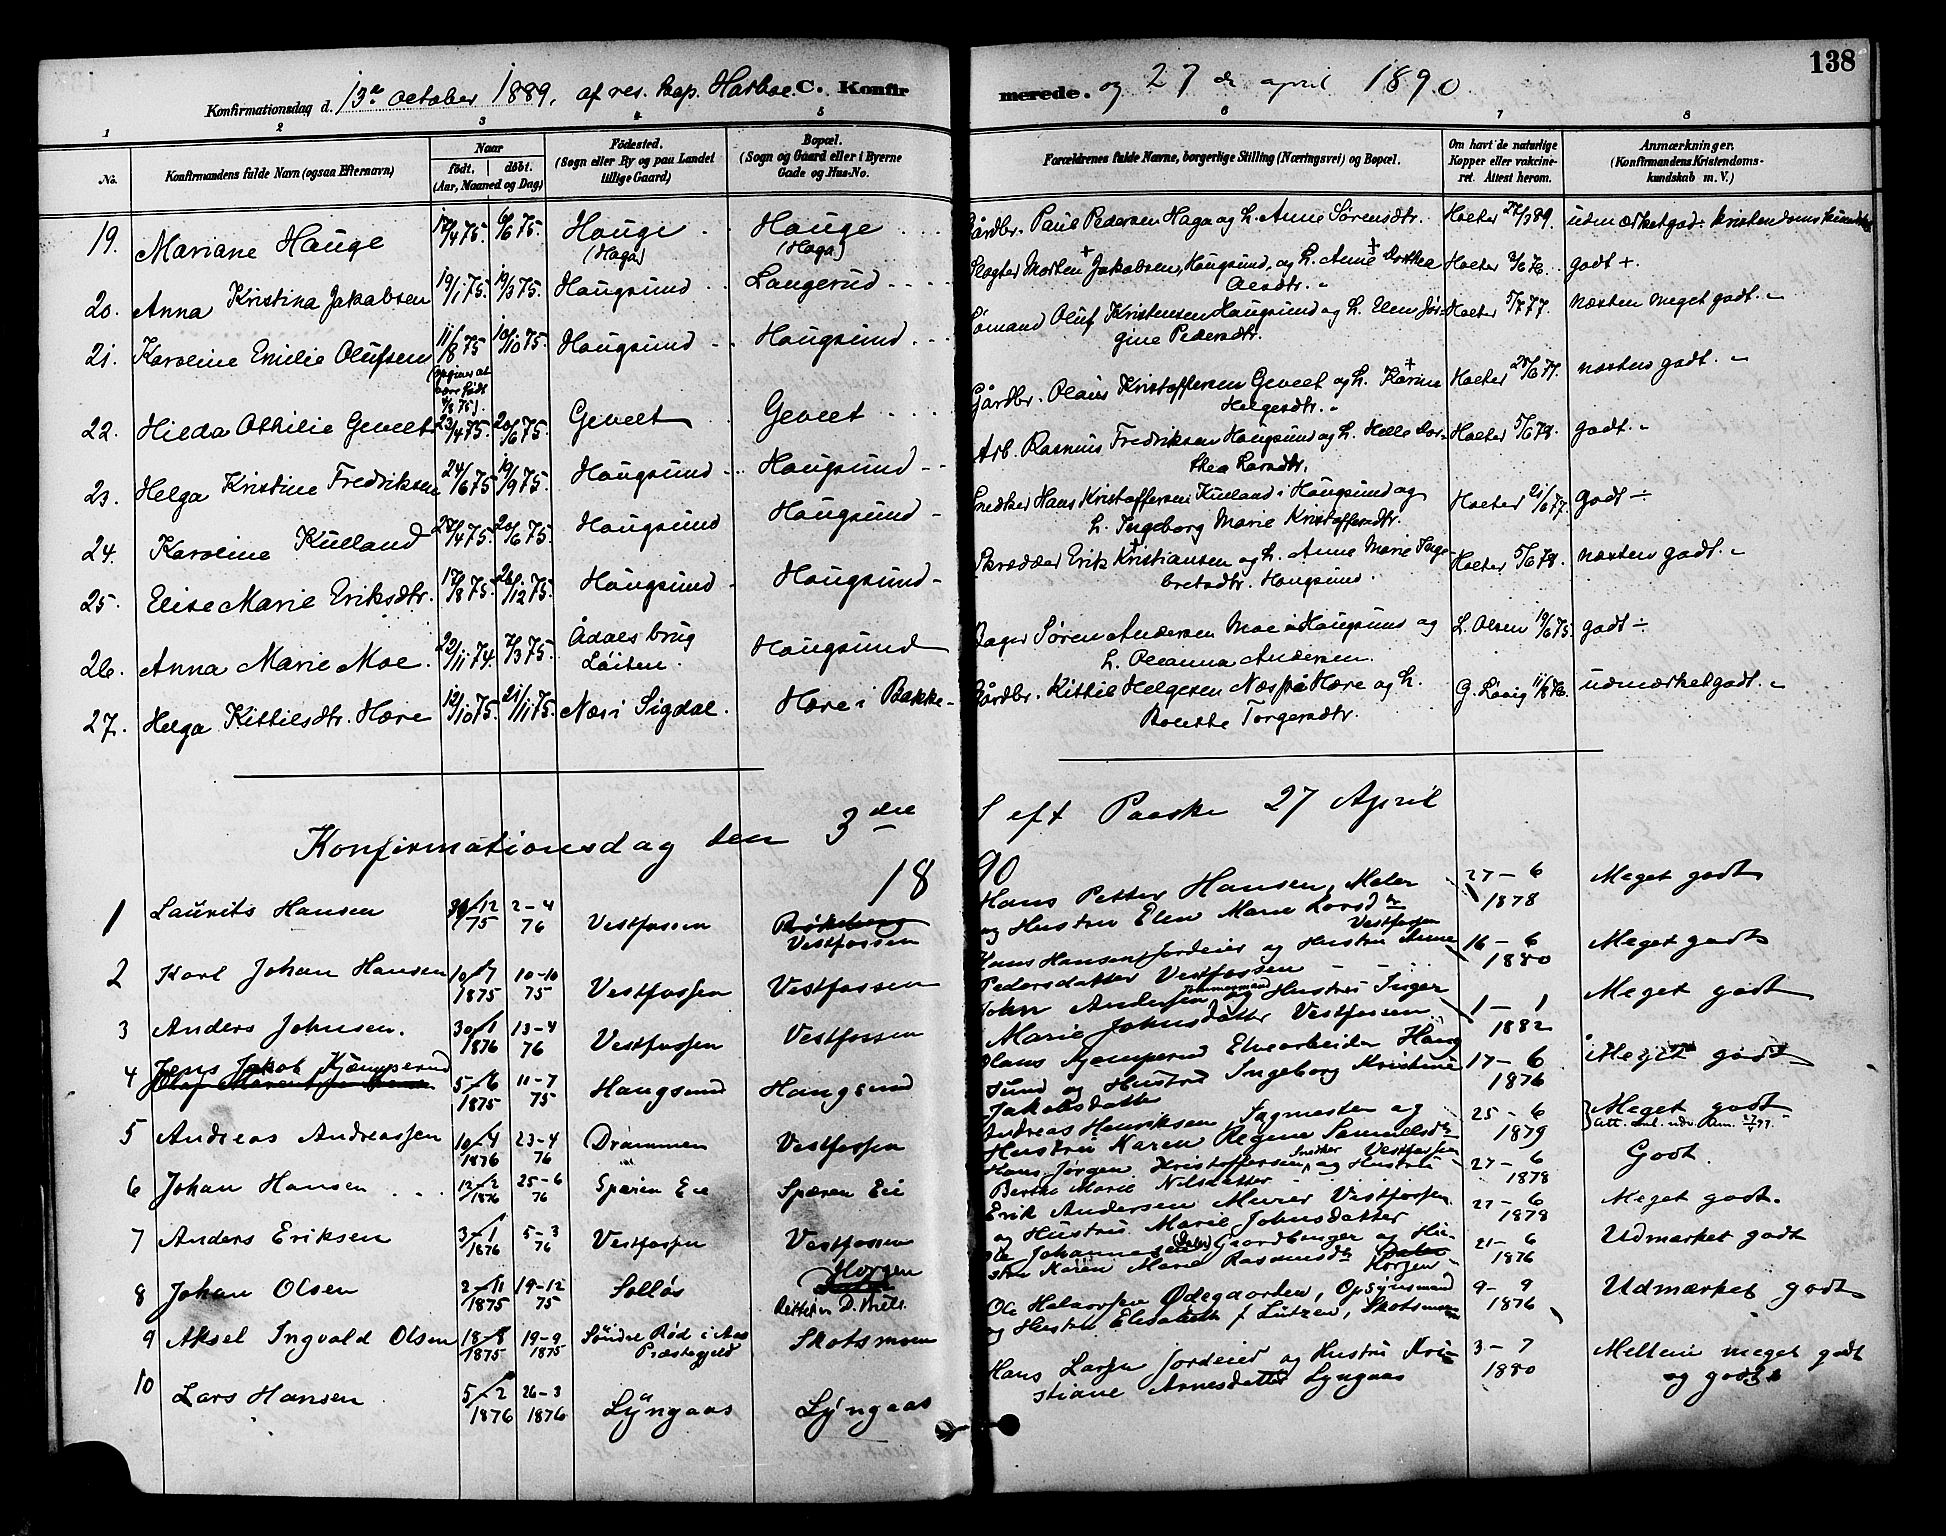 138
Konfirmationsdag d. 13de October 1889, af res. kap. Harboe C. Konfirmerede. og 27de april 1890.
1 2 3 4 5 6 7 8
No. Konfirmandens fulde Navn (ogsaa Efternavn) Naar født, døbt. (Aar, Maaned og Dag) Fødested. (Sogn eller By og paa Landet tillige Gaard) Bopæl. (Sogn og Gaard eller i Byerne Gade og Hus-No. Forældrenes fulde Navne, borgerlige Stilling (Næringsvei) og Bopæl. Om havt de naturlige Kopper eller vakcineret. Attest herom. Anmærkninger. (Konfirmandens Kristendomskundskab m. V.)
19. Mariane Hauge 12/4 75. 6/6 75. Hauge (Haga) Hauge (Haga) Gårdbr. Paul Pedersen Haga og h. Anne Sørensdtr. Holter udmærketgod kristendomskundskab
20. Anna Kristina Jakobsen 19/1 75. 19/3 75. Hougsund Langerud Slagter Morten + Jakobsen, Hougsund, og h. Anne + Dorthea Olsdtr. Holter 2/6 76. godt +
21. Karoline Emilie Olufsen 11/8 75 (opgives at være født 4/8 75). 10/10 75. Hougsund Hougsund Sømand Oluf Kristensen Hougsund og h. Elen Jørgine Pedersdtr. Holter 5/7 77. næsten meget godt.
22. Hilda Othilie Gevelt 23/4 75. 20/6 75. Gevelt Gevelt Gårdbr. Olaus Kristoffersen Gevelt og h. Karine + Helgesdtr. Holter 28/6 77. næsten godt.
23. Helga Kristine Fredriksen 24/6 75. 19/9 75. Hougsund Hougsund Arb. Rasmus Fredriksen Hougsund og h. Helle Dorthea Larsdtr. Holter 5/6 79. godt.
24. Karoline Kulland 27/4 75. 20/6 75. Hougsund Hougsund Snedker Hans Kristoffersen Kulland i Hougsund og h. Ingeborg Marie Kristoffersdtr. Holter 21/6 77. godt ÷
25. Elise Marie Eriksdtr. 17/8 75. 26/12 75. Hougsund Hougsund Skrædder Erik + Kristiansen og h. Anne Marie Ingebretsdtr. Hougsund. Holter 5/6 78. næsten godt.
26. Anna Marie Moe. 22/11 74. 7/3 75. Ådals brug Løiten. Hougsund Bager Søren Andersen Moe i Hougsund og h. Oleanna Andersen. L. Olsen 19/6 75. godt ÷
27. Helga Kittilsdtr. Hære 12/10 75. 21/11 75. Næs i Sigdal. Hære i Bakke Gårdbr. Kittil Helgesen Næs på Hære og h. Bolette Torgersdtr. G. Lövig 11/8 76. udmærket godt.
Konfirmationsdag den 3die S eft Paaske 27 April
1890
1 Laurits Hansen 30/12 75 2-4 76 Vestfossen Vestfossen Hans Petter Hansen, Maler og Hustru Elen Marie Larsdtr Vestfossen 27-6 1878 Meget godt
2 Karl Johan Hansen 10/7 1875 10-10 75 Vestfossen Vestfossen Hans Hansen Jordeier og Hustru Anne Pedersdatter Vestfossen 16-6 1880 Meget godt
3 Anders Johnsen. 30/1 1876 13-4 76 Vestfossen Vestfossen John Andersen Tømmermand og Hustru Inger Marie Johnsdatter Vestfossen 1-1 1882 Meget godt
4 Jens Jakob Kjæmperud 5/6 1875 11-7 75 Haugsund Haugsund Hans Kjemperud Elvearbeider Haugsund og Hustru Ingeborg Kristine Jakobsdatter 17-6 1876 Meget godt
5 Andreas Andreassen 10/4 1876 23-4 76 Drammen Vestfossen Andreas Henriksen, Sagmester og Hustru Karen Regine Samuelsdtr Vestfossen 25-6 1879 Meget godt
6 Johan Hansen 12-2 1876 25-6 76 Spæren Eie Spæren Eie Hans Jørgen Kristoffersen, Snedker og Hustru Berthe Marie Nilsdatter 27-6 1878 Godt.
7 Anders Eriksen 3/1 1876 5-3 76 Vestfossen Vestfossen Erik Andersen Murer Vestfossen og Hustru Marie Johnsdatter 27-6 1878 Meget godt.
8 Johan Olsen 2/11 1875 19-12 75 Solløs Horgen Ole Johannesen Gaardbruger og Hustru Karen Marie Rasmusdtr Horgen 21-6 1876 Udmærket godt
9 Aksel Ingvald Olsen 18-8 1875 19-9 1875 Søndre Rød i Aas Præstegjeld Skotsmoen Ole Halvorsen Ødegaarden, Opsynsmand og Hustru Elisabeth f Lützen, Skotsmoen 9-9 1876 Udmærket godt
10 Lars Hansen 5/2 1876 26-3 1876 Lyngaas Lyngaas Hans Larsen Jordeier og Hustru Kristiane Arnesdatter Lyngaas 3-7 1880 Mellem meget godt og godt